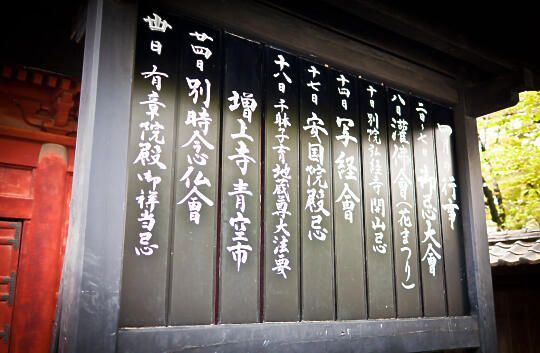 四月行事
二日～七日 御忌大会
八日 灌仏会(花まつり)
十日 別院弘経寺開山忌
十四日 写経會
十七日 安国院殿忌
十八日 千躰子育地蔵尊大法要
増上寺青空市
廿四日 別時念仏會
卅日 有章院殿御祥当忌